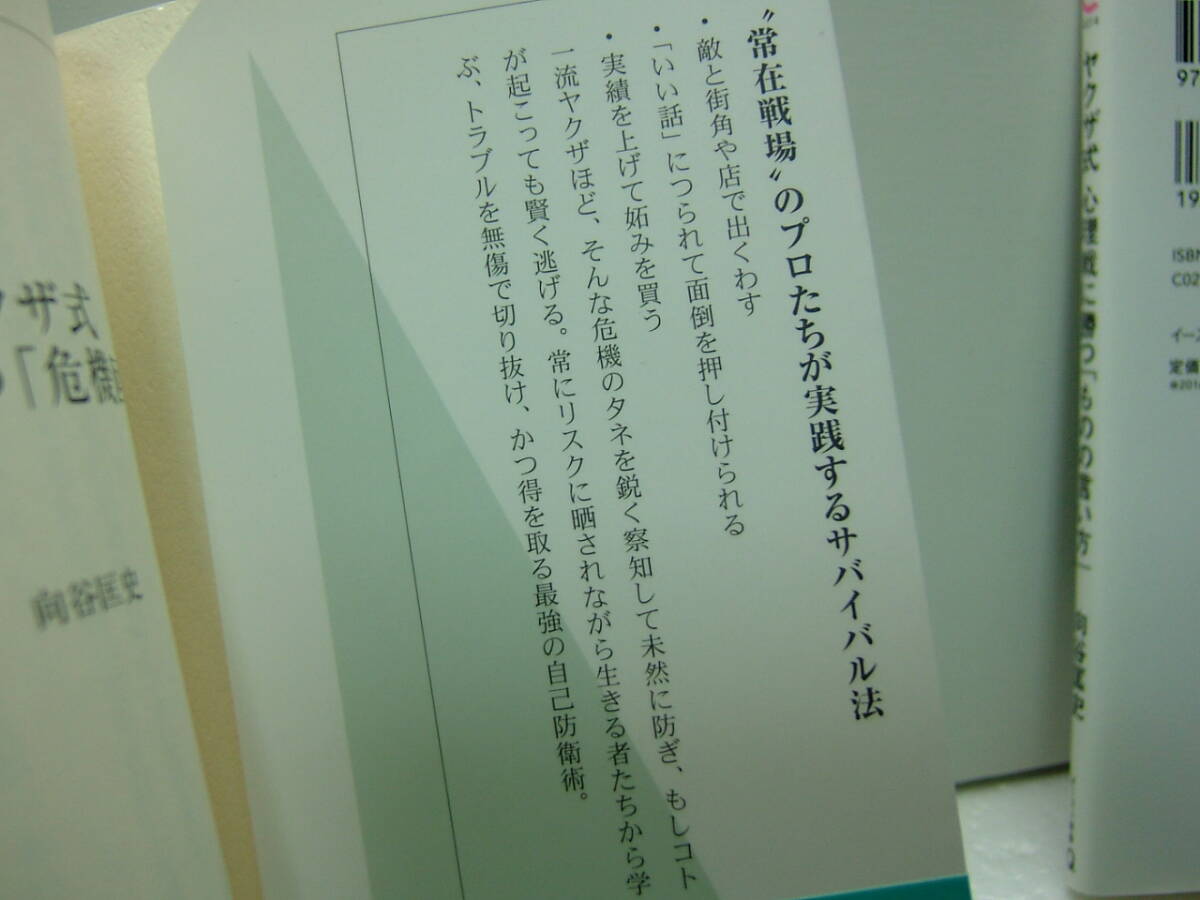 〝常在戦場〟のプロたちが実践するサバイバル法
・敵と街角や店で出くわす
・「いい話」につられて面倒を押し付けられる
・実績を上げて妬みを買う
一流ヤクザほど、そんな危機のタネを鋭く察知して未然に防ぎ、もしコト
が起こっても賢く逃げる。常にリスクに晒されながら生きる者たちから学
ぶ、トラブルを無傷で切り抜け、かつ得を取る最強の自己防衛術。
ヤクザ式 心理戦に勝つ「ものの言い方」
ザ式
「危機
向谷匡史
97
19
ISBN
C02
イー
定価